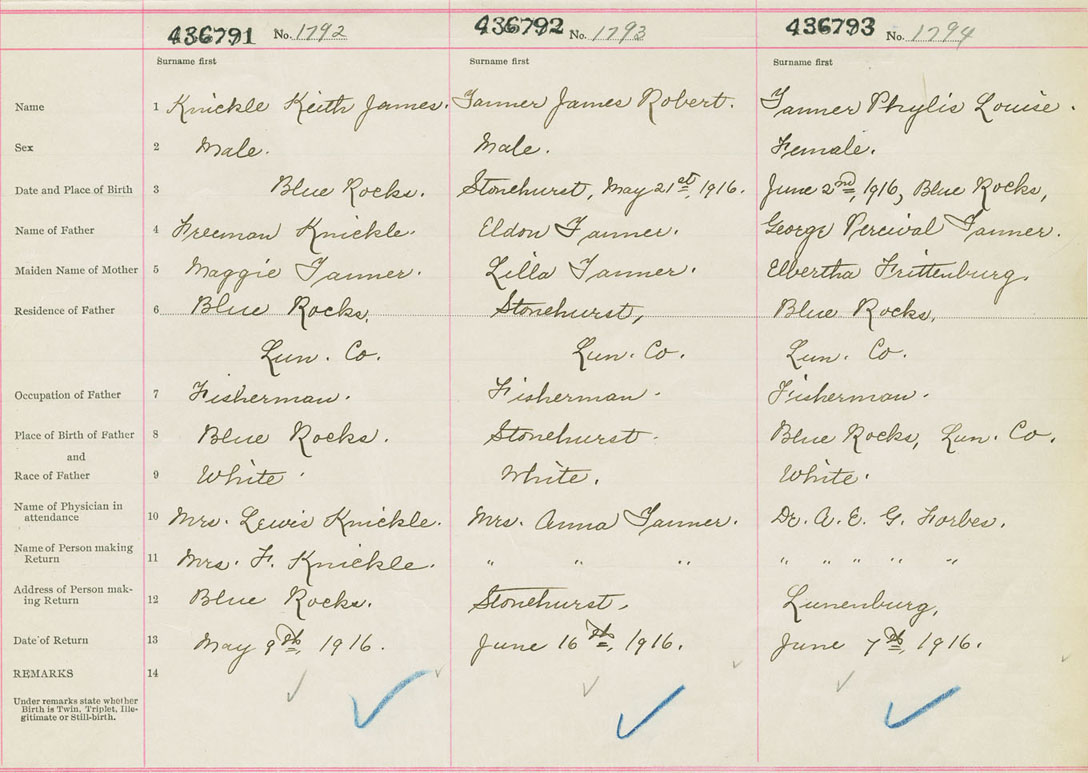 436791 No. 1792 436792 No. 1793 436793 No. 1794
Surname first Surname first Surname first
Name 1 Knickle Keith James. Tanner James Robert. Tanner Phylis Louise.
Sex 2 Male. Male. Female.
Date and Place of Birth 3 Blue Rocks. Stonehurst, May 21st, 1916. June 2nd, 1916, Blue Rocks,
Name of Father 4 Freeman Knickle. Eldon Tanner. George Percival Tanner.
Maiden Name of Mother 5 Maggie Tanner. Zilla Tanner. Elbertha Frittenburg.
Residence of Father 6 Blue Rocks, Stonehurst, Blue Rocks,
Lun. Co. Lun. Co. Lun. Co.
Occupation of Father 7 Fisherman. Fisherman. Fisherman.
Place of Birth of Father 8 Blue Rocks. Stonehurst. Blue Rocks, Lun. Co.
and
Race of Father 9 White. White. White.
Name of Physician in
attendance 10 Mrs. Lewis Knickle. Mrs. Anna Tanner. Dr. A. E. G. Forbes.
Name of Person making
Return 11 Mrs. F. Knickle. " " " " " " " "
Address of Person mak-
ing Return 12 Blue Rocks. Stonehurst. Lunenburg,
Date of Return 13 May 9th, 1916. June 16th, 1916. June 7th, 1916.
REMARKS 14
Under remarks state whether
Birth is Twin, Triplet, Ille-
gitimate or Still-birth.